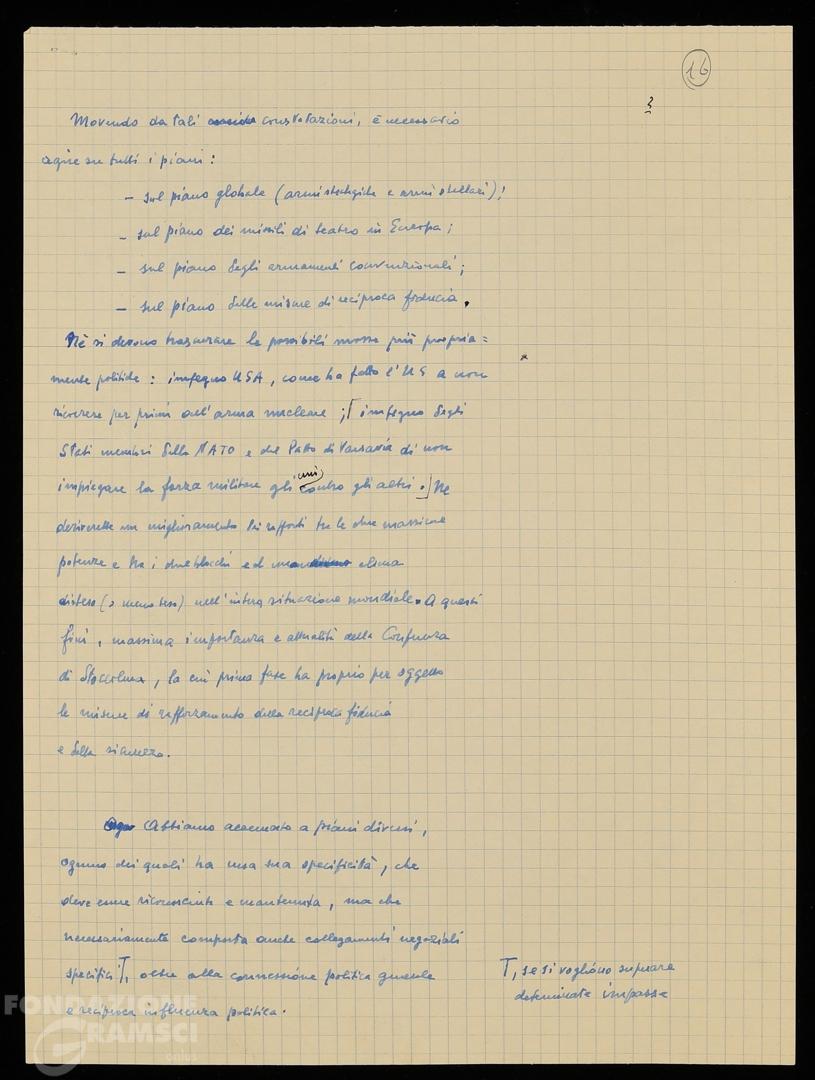 16
Movendo da tali constatazioni, è necessario
agire su tutti i piani:
– sul piano globale (armi strategiche e armi stellari);
– sul piano dei missili di teatro in Europa;
– sul piano degli armamenti convenzionali;
– sul piano delle misure di reciproca fiducia.
Nè si devono trascurare le possibili mosse più propria=
mente politiche: impegno USA, come ha fatto l'US a non
ricorrere per primi all'arma nucleare; [impegno degli
Stati membri della NATO e del Patto di Varsavia di non
impiegare la forza militare gli uni contro gli altri.] Ne
deriverebbe un miglioramento dei rapporti tra le due massime
potenze e tra i due blocchi ed un clima
disteso (o meno teso) nell'intera situazione mondiale. A questi
fini, massima importanza e attualità della Conferenza
di Stoccolma, la cui prima fase ha proprio per oggetto
le misure di rafforzamento della reciproca fiducia
e della sicurezza.
Abbiamo accennato a piani diversi,
ognuno dei quali ha una sua specificità, che
deve essere riconosciuta e mantenuta, ma che
necessariamente comporta anche collegamenti negoziali
specifici T, oltre alla connessione politica generale
e reciproca influenza politica.
T, se si vogliono superare
determinate impasse
FONDAZIONE
GRAMSCI
onlus